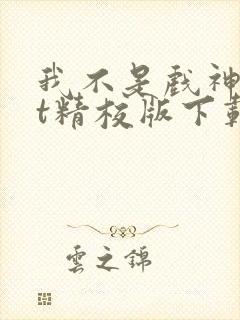 我不是戏神
t精校版下载
雲之錦